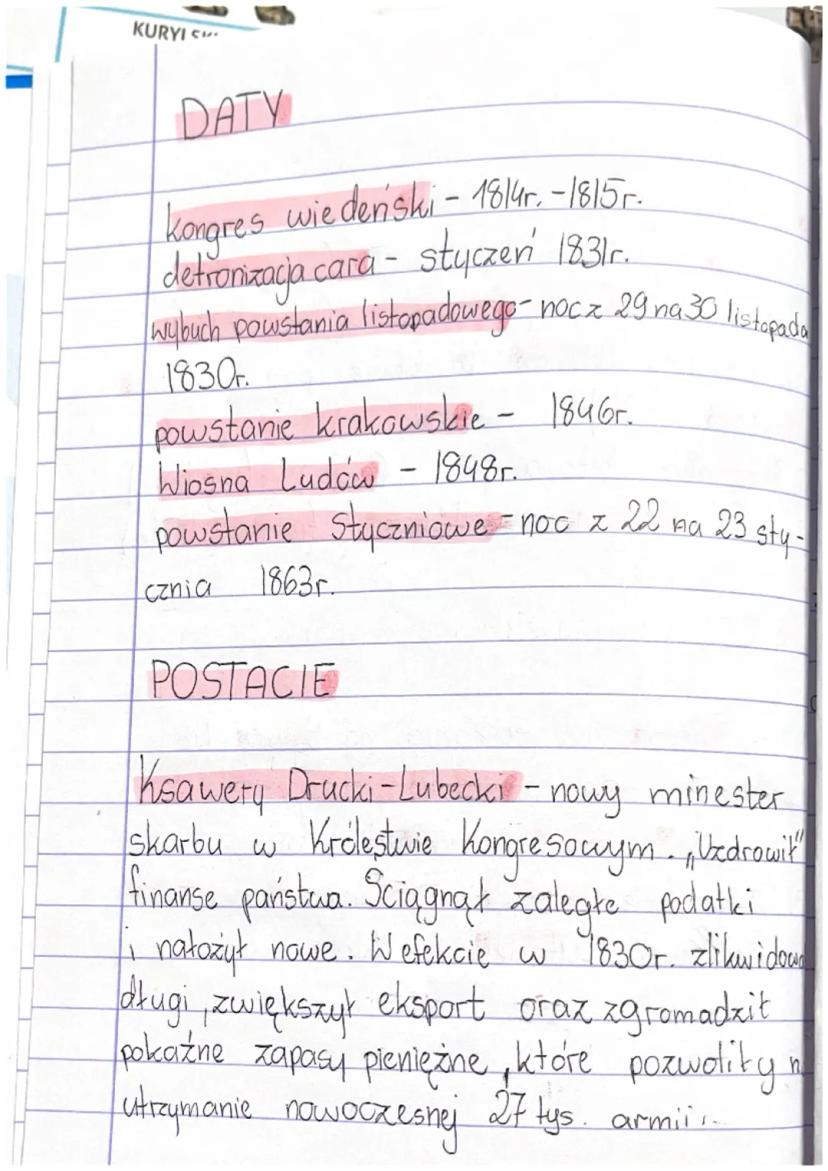 DATY
kongres wiedeński - 1814r. - 1815r.
detronizacja cara - styczeń 1831r.
wybuch powstania listopadowego - noc z 29 na 30 listopada
1830r.
powstanie krakowskie - 1846r.
Wiosna Ludów - 1848r.
powstanie Styczniowe - noc z 22 na 23 sty-
cznia 1863r.
POSTACIE
Ksawery Drucki-Lubecki - nowy minester
skarbu w Królestwie Kongresowym. „Uzdrowił”
finanse państwa. Ściągnął zaległe podatki
i nałożył nowe. W efekcie w 1830r.
długi, zwiększył eksport oraz zgromadził
pokaźne zapasy pieniężne, które pozwoliły
utrzymanie nowoczesnej 27 tys. armii.